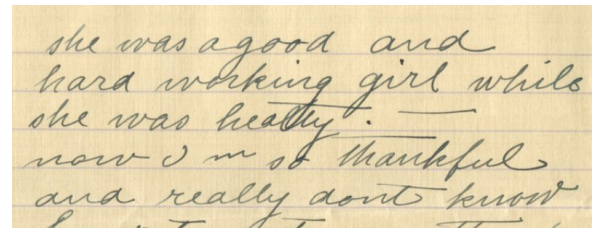 she was a good and
hard working girl while
she was healty. —
now I m so thankful
and really dont know